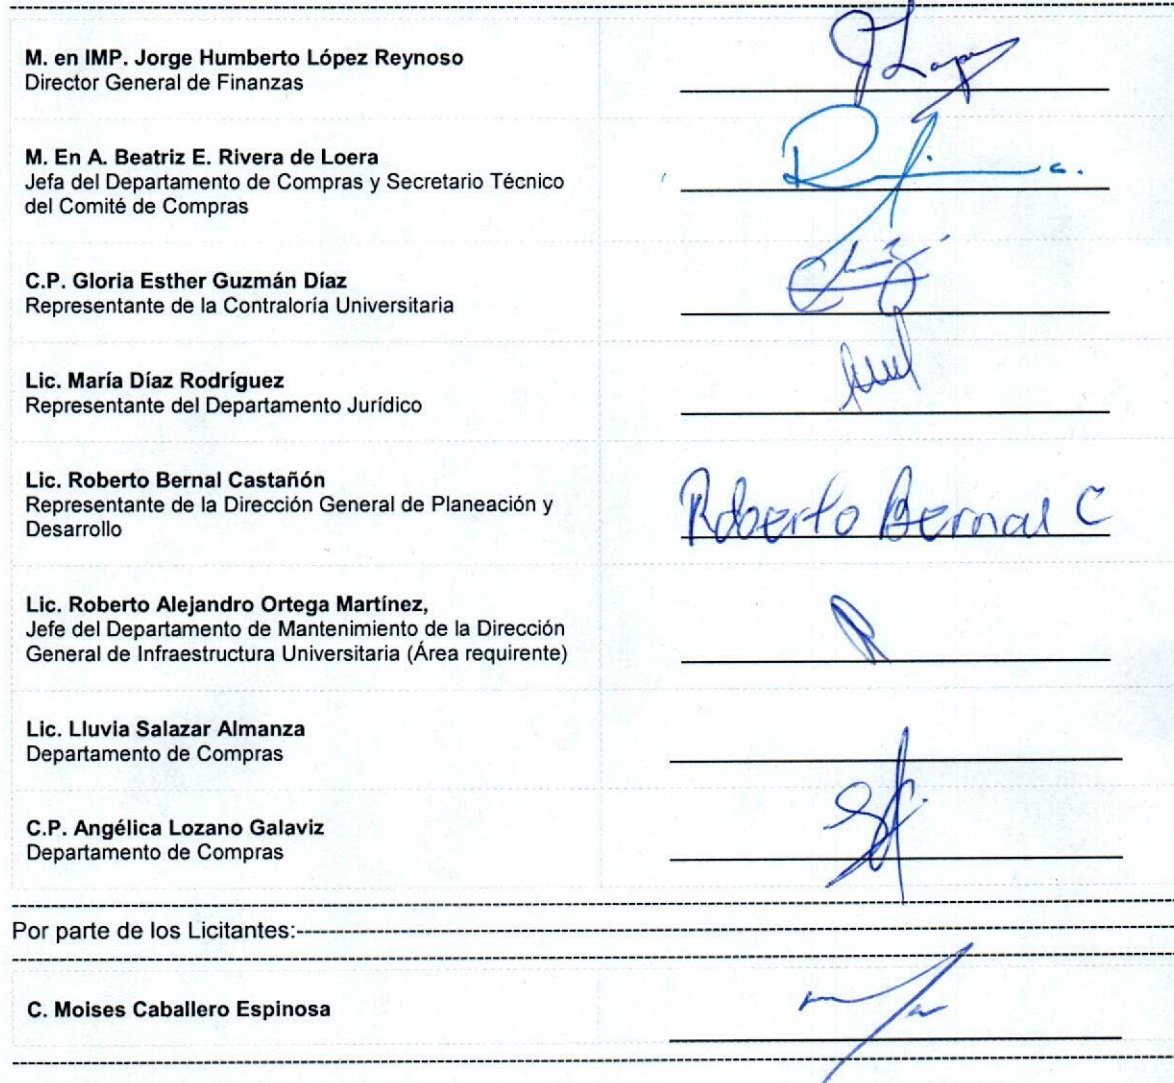 M. en IMP. Jorge Humberto López Reynoso
Director General de Finanzas
J Lopez
M. En A. Beatriz E. Rivera de Loera
Jefa del Departamento de Compras y Secretario Técnico
del Comité de Compras
C.P. Gloria Esther Guzmán Díaz
Representante de la Contraloría Universitaria
Lic. María Díaz Rodríguez
Representante del Departamento Jurídico
Lic. Roberto Bernal Castañón
Representante de la Dirección General de Planeación y
Desarrollo
Roberto Bernal C
Lic. Roberto Alejandro Ortega Martínez,
Jefe del Departamento de Mantenimiento de la Dirección
General de Infraestructura Universitaria (Área requirente)
Lic. Lluvia Salazar Almanza
Departamento de Compras
C.P. Angélica Lozano Galaviz
Departamento de Compras
Por parte de los Licitantes:
C. Moises Caballero Espinosa